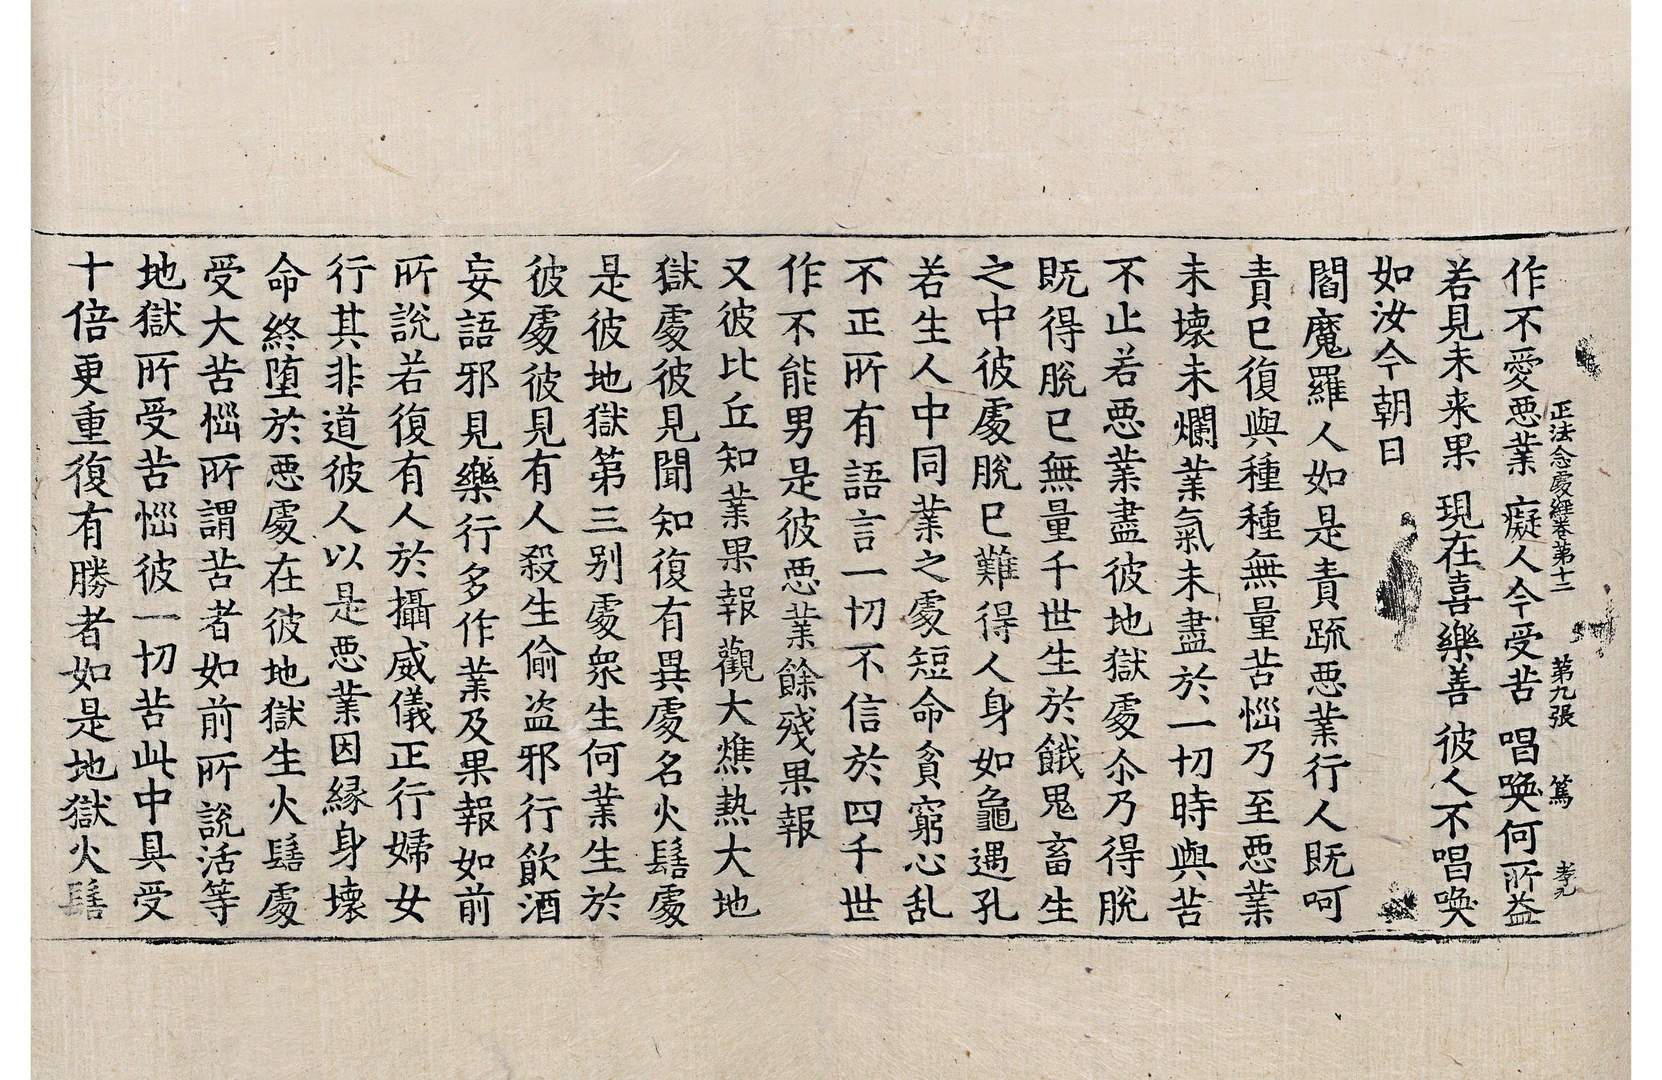 正法念處經卷第十二　第九張　篤　孝九
作不愛惡業　癡人今受苦　唱喚何所益
若見未来果　現在喜樂善　彼人不唱喚
如汝今朝日
閻魔羅人如是責疏惡業行人既呵
責已復與種種無量苦惱乃至惡業
未壞未爛業氣未盡於一切時與苦
不止若惡業盡彼地獄處尒乃得脫
既得脫已無量千世生於餓鬼畜生
之中彼處脫已難得人身如龜遇孔
若生人中同業之處短命貧窮心乱
不正所有語言一切不信於四千世
作不能男是彼惡業餘殘果報
又彼比丘知業果報觀大燋熱大地
獄處彼見聞知復有異處名火髻處
是彼地獄第三別處衆生何業生於
彼處彼見有人殺生偷盗邪行飲酒
妄語邪見樂行多作業及果報如前
所說若復有人於攝威儀正行婦女
行其非道彼人以是惡業因緣身壞
命終堕於惡處在彼地獄生火髻處
受大苦惱所謂苦者如前所說活等
地獄所受苦惱彼一切苦此中具受
十倍更重復有勝者如是地獄火髻